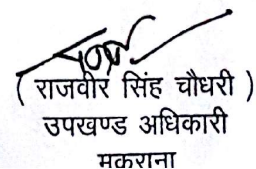 ( राजवीर सिंह चौधरी )
उपखण्ड अधिकारी
मकराना